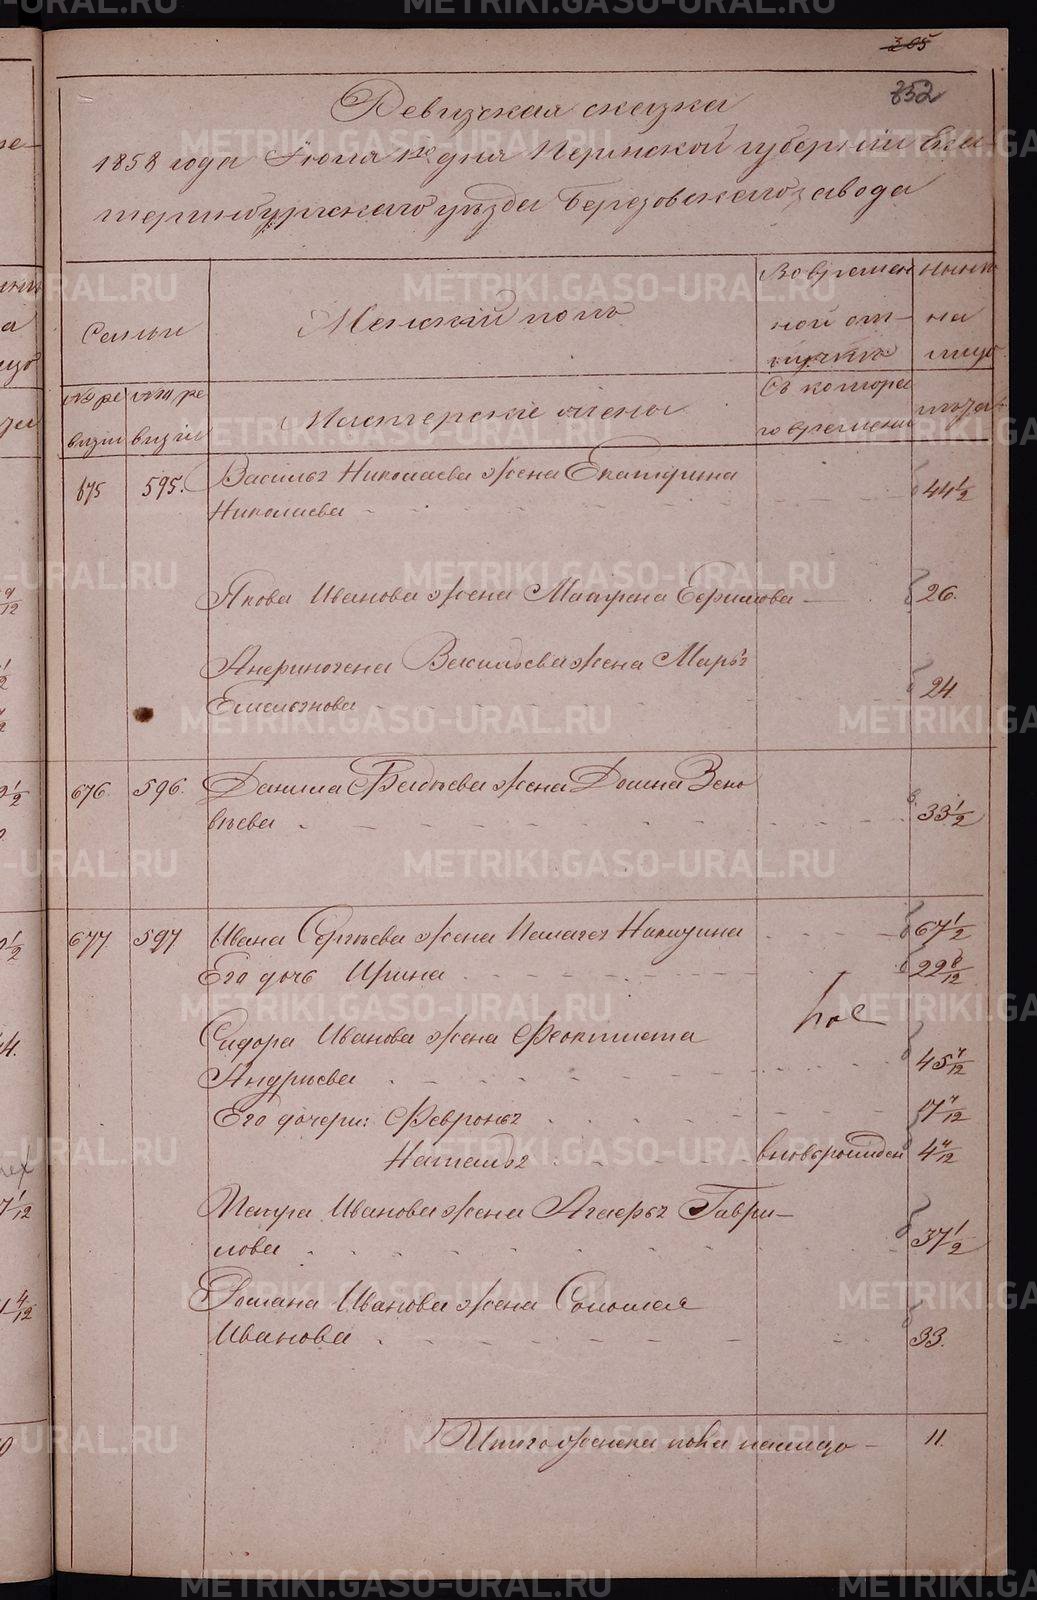 365
352
Ревизская сказка
1858 года Июня 1го дня Пермской губернии Ека-
теринбургского уезда Березовского завода
Семьи
Женский полъ
Во времен
ной от-
лучкѣ
нынѣ
на
лицо
№ ре
визiи
№ ре
визiи
Мастерскiе жены
Съ которa
го времени
лѣта
675 595. Василья Николаева жена Екатерина
Николаева 44 1/2
Якова Иванова жена Матрена Ефимова 26.
Васильева жена Марья
Емельянова 24
676. 596. Данила жена Домна Зено
вьева 33 1/2
677 597 Ивана Сергѣева жена Пелагея Никитина 67 1/2
Его дочь Ирина 22 8/12
Сидора Иванова жена Феоктиста
Андреева 45 7/12
Его дочери: Февронья 17 7/12
Наталья вновьрожден 4 4/12
Петра Иванова жена Агафья Гаври-
лова 37 1/2
Романа Иванова жена Соломея
Иванова 33.
Итого женска пола налицо - 11.
METRIKI.GASO-URAL.RU